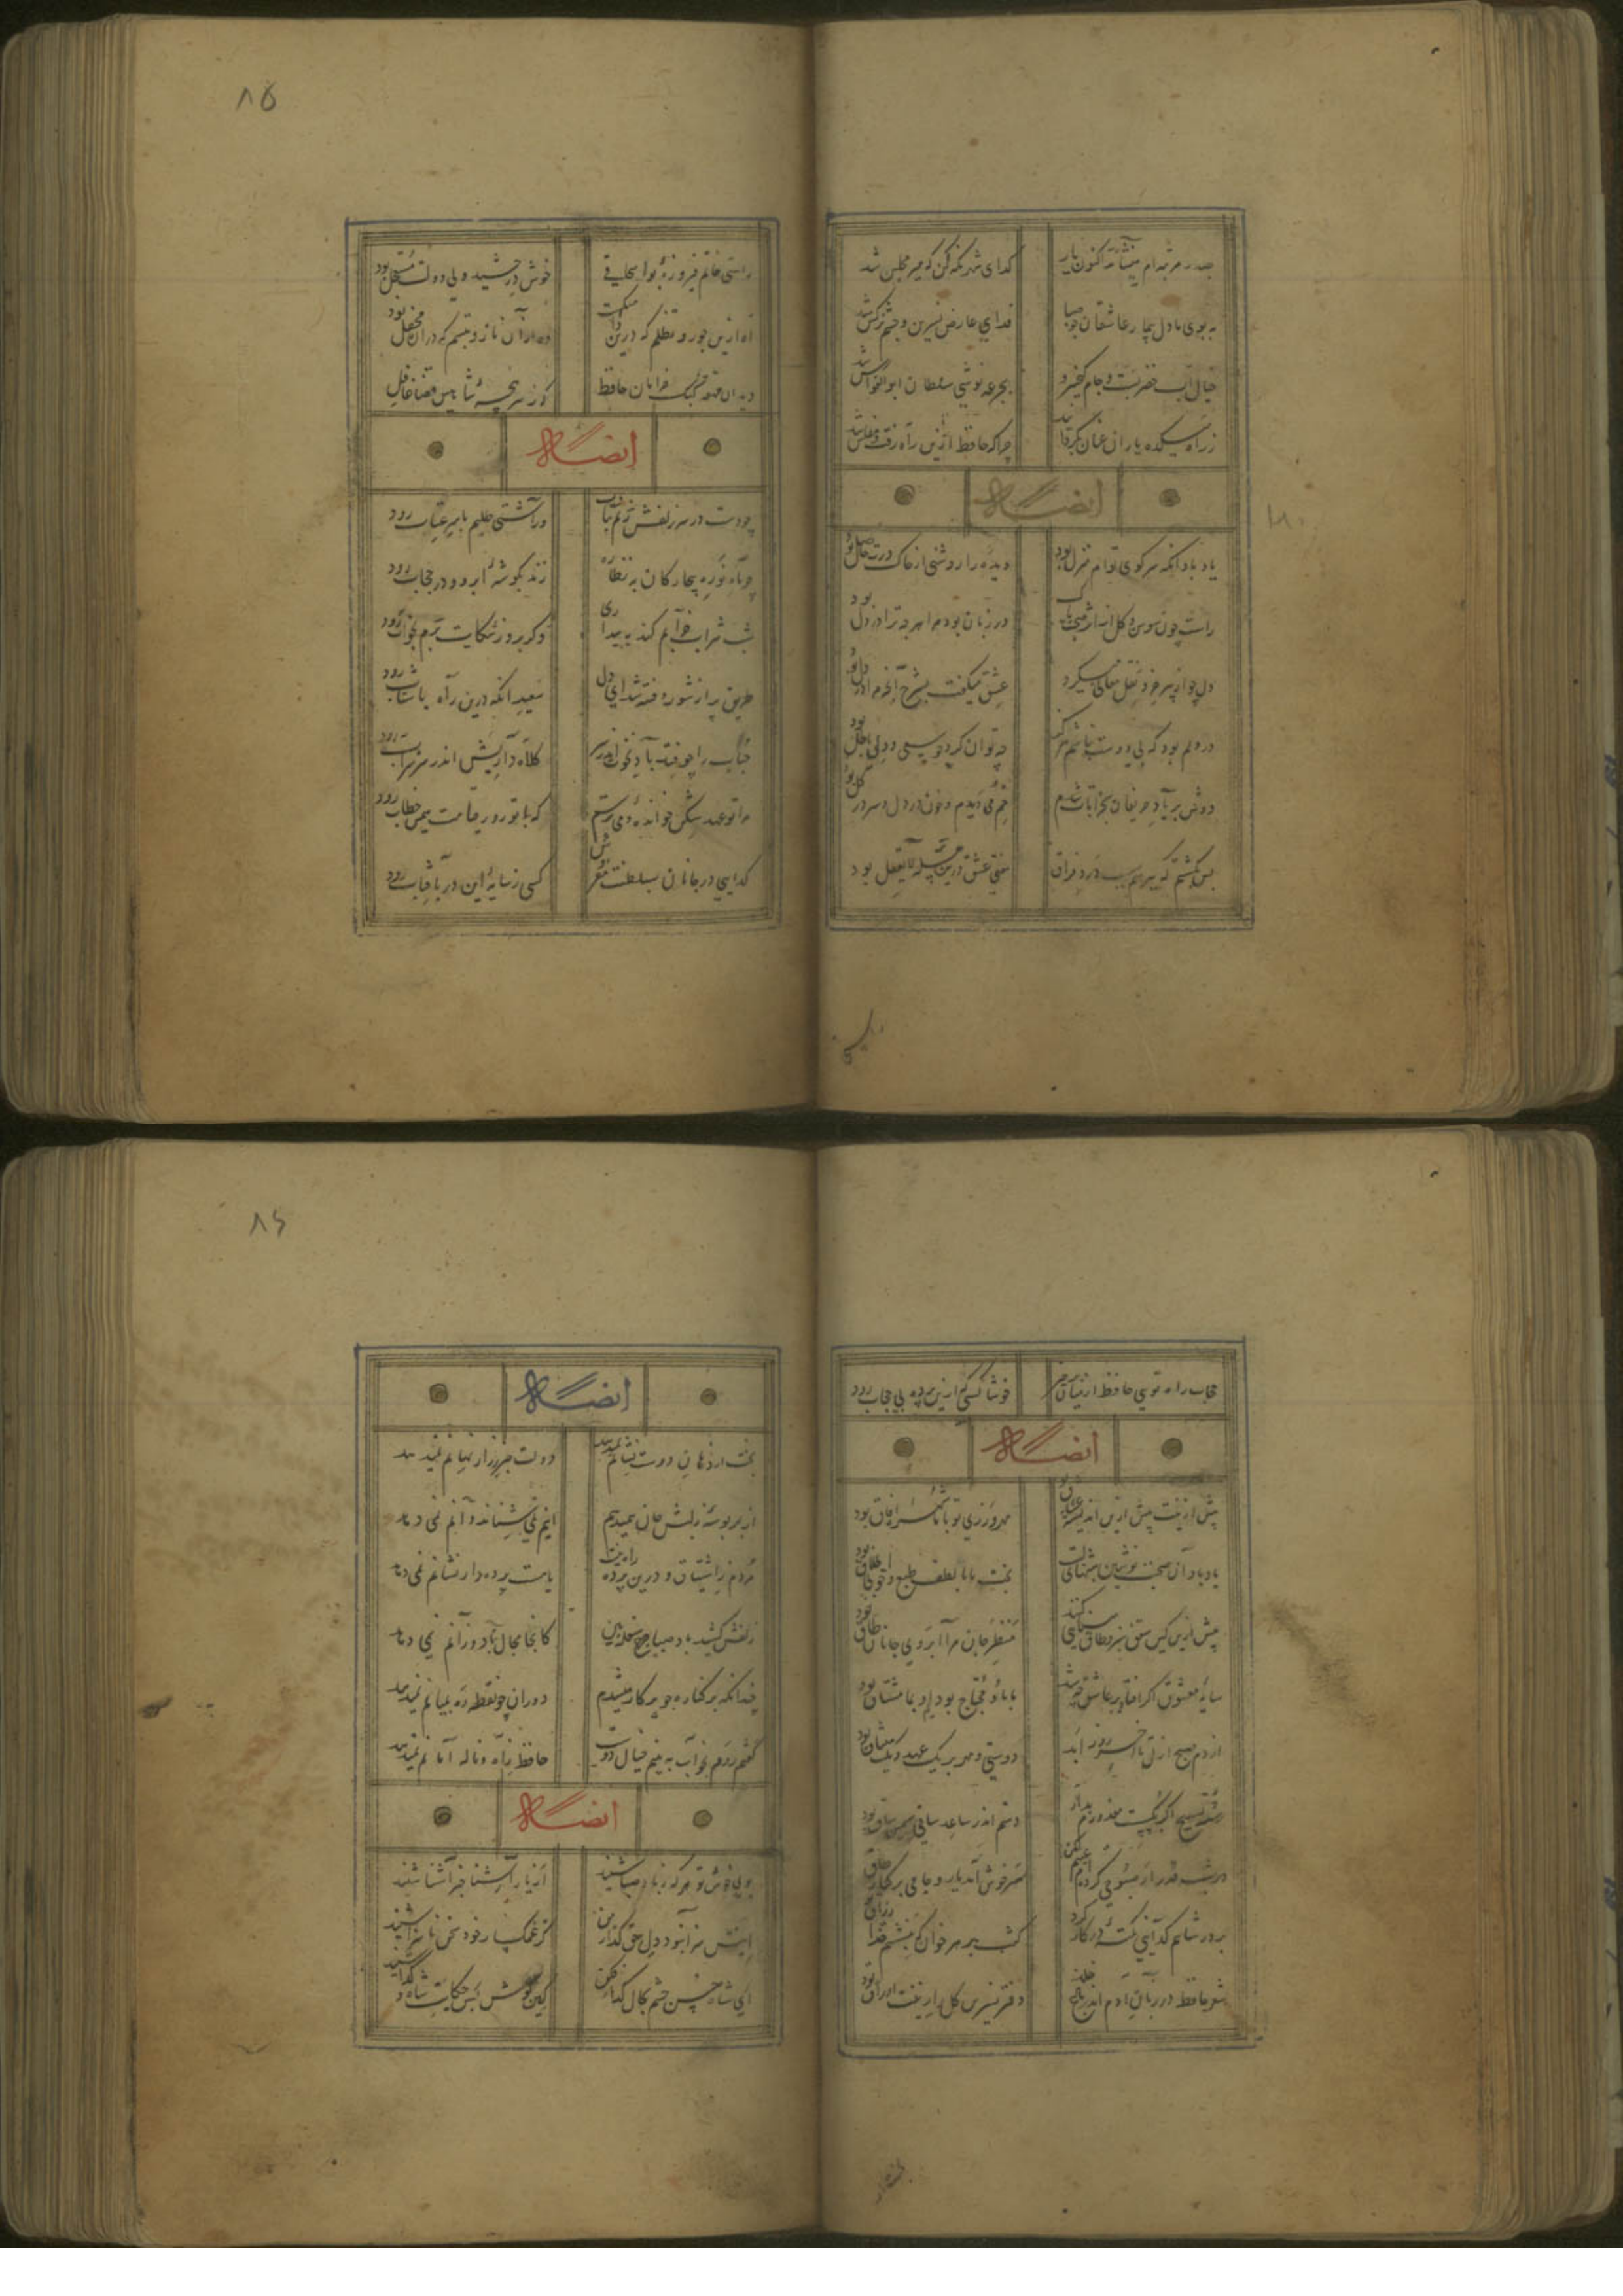 بصدر مرتبه‌ام می‌نشاند اکنون یار گدای شهر نگه کن که میر مجلس شد
ببوی او دل بیمار عاشقان چو صبا فدای عارض نسرین و چشم نرگس شد
خیال آب خضر بست و جام کیخسرو بجرعه نوشی سلطان ابوالفوارس شد
ز راه میکده یاران عنان بگردانید چرا که حافظ ازین راه رفت و مفلس شد
ایضاً له
یاد باد آنکه سر کوی توام منزل بود دیده را روشنی از خاک درت حاصل بود
راست چون سوسن و گل از اثر صحبت پاک در زبان بود مرا هرچه ترا در دل بود
دل چو از پیر خرد نقل معانی میکرد عشق میگفت بشرح آنچه مرا مشکل بود
در دلم بود که بی دوست نباشم هرگز چه توان کرد که سعی من و دل باطل بود
دوش بر یاد حریفان بخرابات شدم خم می دیدم و خون در دل و سر در گل بود
بس بگشتم که بپرسم سبب درد فراق مفتی عشق درین مسئله لایعقل بود
۸۵
راستی خاتم فیروزه بواسحاقی خوش درخشید ولی دولت مستعجل بود
آه ازین جور و تظلم که درین دامگهست وه از آن ناز و تبسم که در آن محفل بود
دیدی آن قهقه کبک خرامان حافظ که ز سرپنجه شاهین قضا غافل بود
ایضاً له
چو دست در سر زلفش زنم بتاب رود ور آشتی طلبم با سر عتاب رود
چو ماه نو ره بیچارگان نظاره زند بگوشه ابرو و در حجاب رود
شب شراب خرابم کند به بیداری وگر بروز شکایت برم بخواب رود
طریق پر از شور و فتنه شد ای دل بیفتد آنکه درین راه با شتاب رود
حباب را چو فتد باد نخوت اندر سر کلاه داریش اندر سر شراب رود
مرا تو عهد شکن خوانده و می‌ترسم که با تو روز قیامت همین خطاب رود
گدایی در جانان بسلطنت مفروش کسی ز سایه این در بآفتاب رود
حجاب راه تویی حافظ از میان برخیز خوشا کسی که ازین پرده بی حجاب رود
ایضاً له
پیش ازینت بیش ازین اندیشه عشاق بود مهر ورزی تو با ما شهره آفاق بود
یاد باد آن صحبت نوشین شبهات
پیش ازین کین سقف سبز و طاق مینایی کنند منظر جان مرا ابروی جانان طاق بود
سایه معشوق اگر افتاد بر عاشق چه شد ما باو محتاج بودیم او بما مشتاق بود
از دم صبح ازل تا آخر روز ابد دوستی و مهر بر یک عهد و یک میثاق بود
رشته تسبیح اگر بگسست معذورم بدار دستم اندر ساعد ساقی سیمین ساق بود
در شب قدر ار صبوحی کرده‌ام عیبم مکن سرخوش آمد یار و جامی بر کنار طاق بود
بر در شاهم گدایی نکته‌ای در کار کرد گفت بر هر خوان که بنشستم خدا رزاق بود
شعر حافظ در زمان آدم اندر باغ خلد دفتر نسرین و گل را زینت اوراق بود
۸۶
ایضاً له
بخت از دهان دوست نشانم نمیدهد دولت خبر ز راز نهانم نمیدهد
از بهر بوسه ز لبش جان همیدهم اینم نمی‌ستاند و آنم نمی‌دهد
مردم ز اشتیاق و درین پرده راه نیست یا هست و پرده‌دار نشانم نمی‌دهد
زلفش کشید باد صبا چرخ سفله بین کانجا مجال باد وزانم نمی‌دهد
چندانکه بر کناره چو پرگار میشدم دوران چو نقطه ره بمیانم نمیدهد
گفتم روم بخواب به بینم خیال دوست حافظ ز آه و ناله امانم نمیدهد
ایضاً له
بوی خوش تو هر که ز باد صبا شنید از یار آشنا خبر آشنا شنید
اینش سزا نبود دل حق گذار من کز غمگسار خود سخن ناسزا شنید
ای شاه حسن چشم بحال گدا فکن کین گوش بس حکایت شاه و گدا شنید